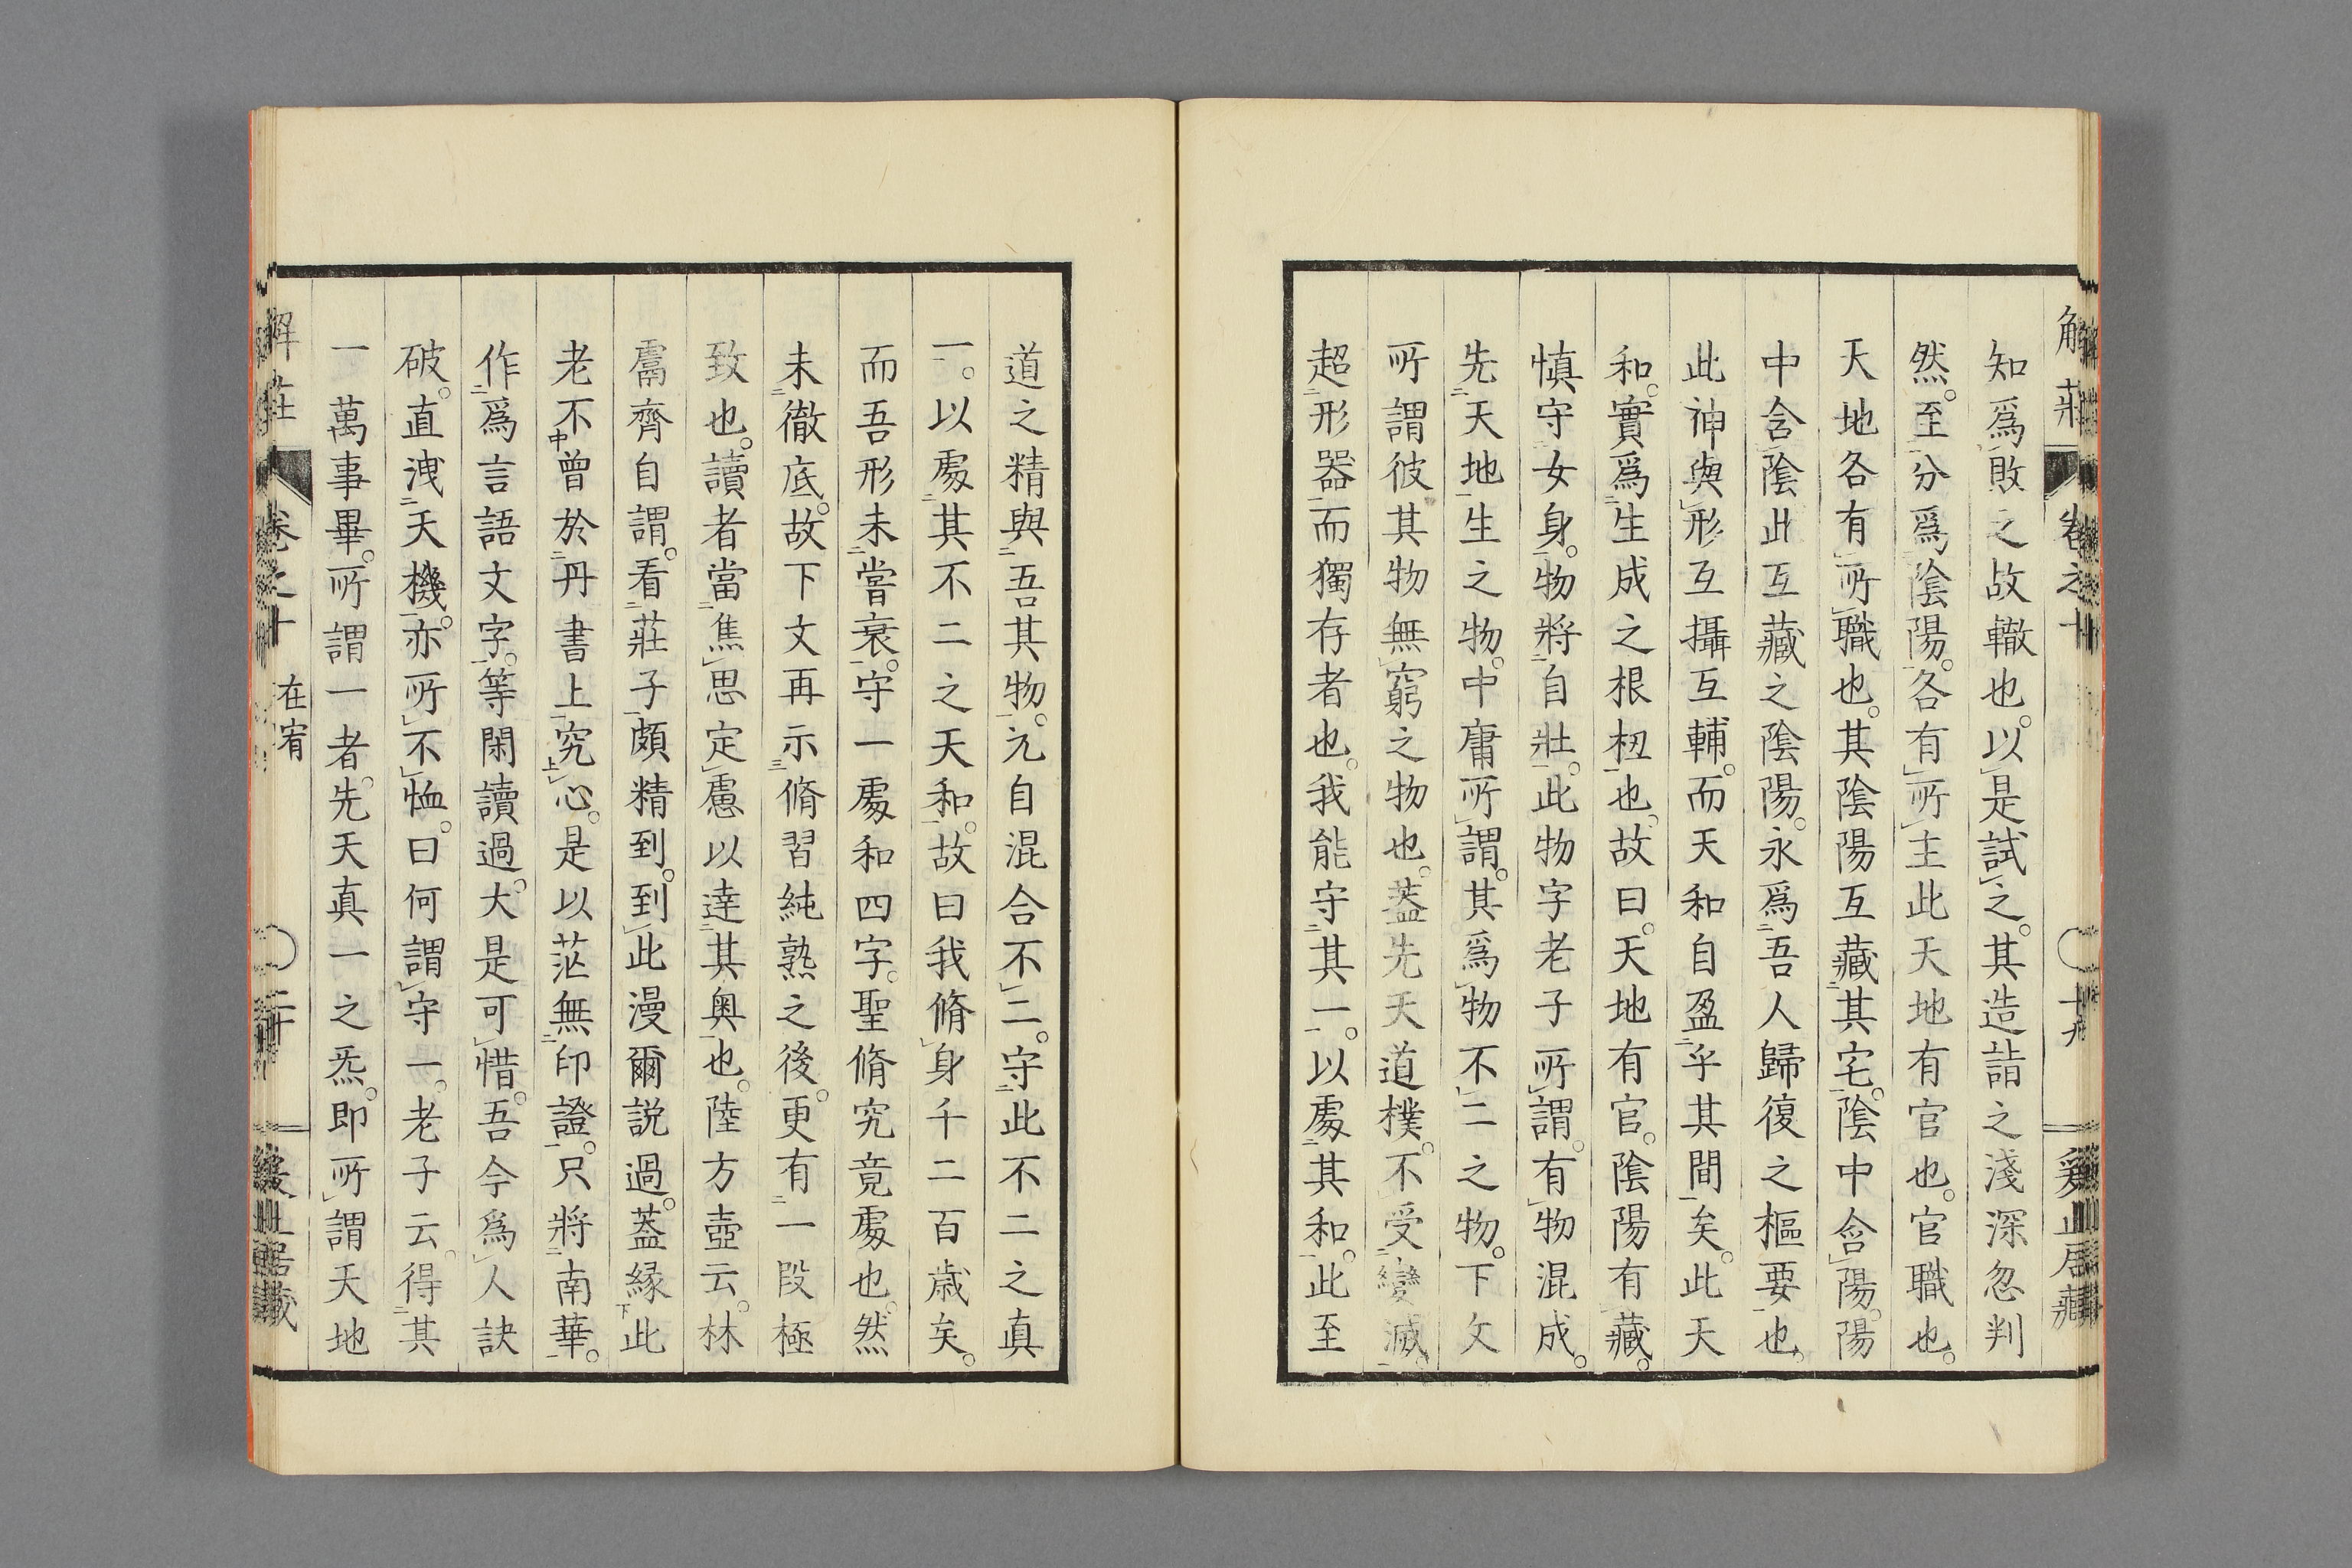 解莊 卷之十 十九
知爲敗之故轍也。以是試之。其造詣之淺深忽判
然。至分爲陰陽。各有所主此天地有官也。官職也。
天地各有所職也。其陰陽互藏其宅。陰中含陽。陽
中含陰此互藏之陰陽。永爲吾人歸復之樞要也。
此神與形互攝互輔。而天和自盈乎其間矣。此天
和。實爲生成之根柢也。故曰。天地有官。陰陽有藏。
慎守女身。物將自壯。此物字老子所謂。有物混成。
先天地生之物。中庸所謂。其爲物不二之物。下文
所謂彼其物無窮之物也。蓋先天道樸。不受變滅。
超形器而獨存者也。我能守其一。以處其和。此至
道之精與吾其物。元自混合不二。守此不二之真
一。以處其不二之天和。故曰我脩身千二百歲矣。
而吾形未嘗衰。守一處和四字。聖脩究竟處也。然
未徹底。故下文再示脩習純熟之後。更有一段極
致也。讀者當焦思定慮以達其奧也。陸方壺云。林
鬳齊自謂。看莊子頗精到。到此漫爾説過。蓋緣此
老不曾於丹書上究心。是以茫無印證。只將南華。
作爲言語文字。等閑讀過。大是可惜。吾今爲人訣
破。直洩天機。亦所不恤。曰何謂守一。老子云。得其
一萬事畢。所謂一者。先天真一之炁。即所謂天地
解莊 卷之十 在宥 二十